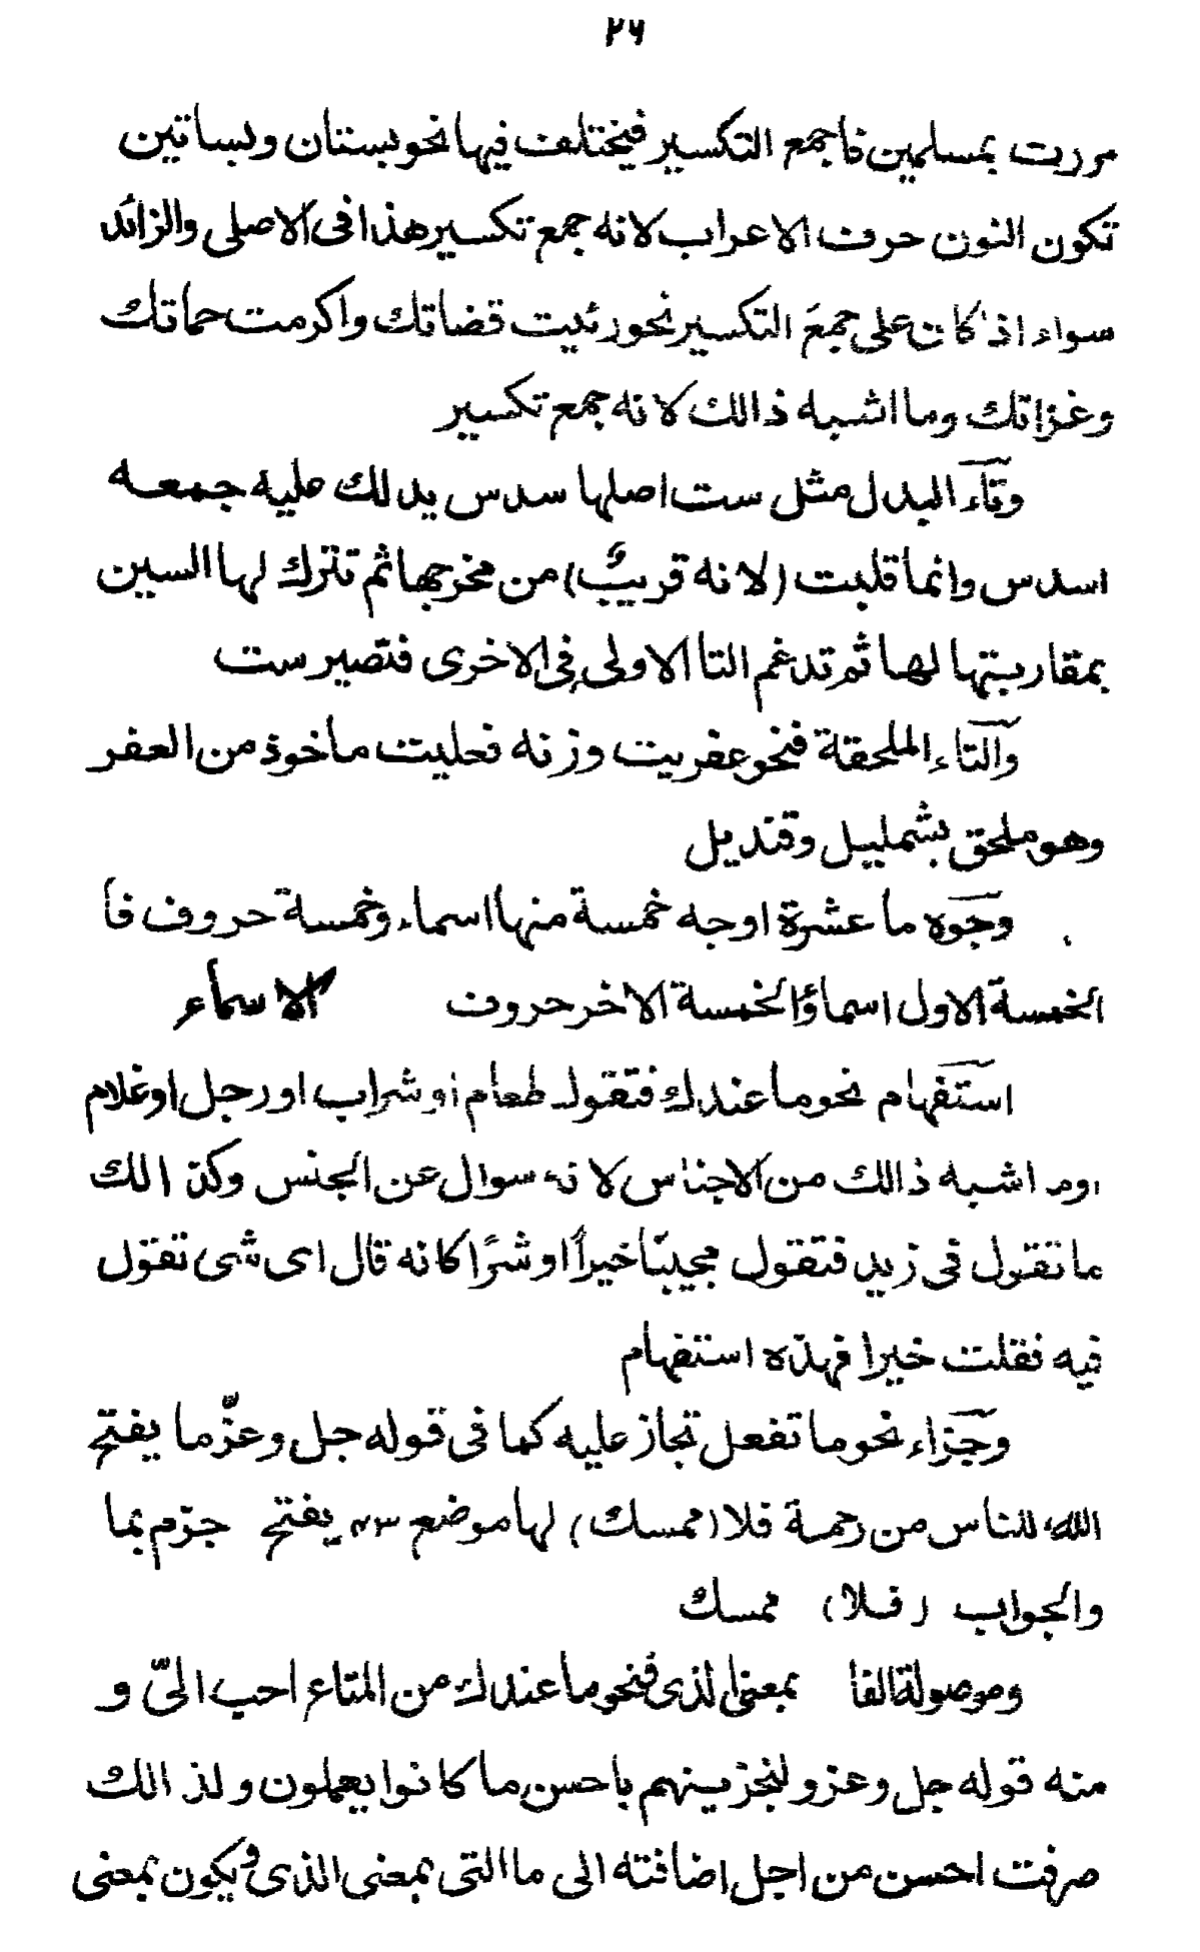 ٢٦
مررت بمسلمين فاجمع التكسير فيختلف فيها نحو بستان وبساتين
تكون النون حرف الاعراب لانه جمع تكسير هذا فى الاصلى والزائد
سواء اذ كان على جمعَ التكسير نحو رئيت قضاتك واكرمت حماتك
وغزاتك وما اشبه ذالك لانه جمع تكسير
وتآء البدل مثل ست اصلها سدس يدلك عليه جمعه
اسدس وانما قلبت (لانه قريبٌ) من مخرجها ثم تترك لها السين
بمقاربتها لها ثم تدغم التا الاولى فى الاخرى فتصير ست
وآلتاء الملحقة فنحو عفريت وزنه فعليت ماخوذ من العفر
وهو ملحق بشمليل وقنديل
وجوه ما عشرة اوجه خمسة منها اسماء وخمسة حروف فا
الخمسة الاول اسماؤ الخمسة الاخر حروف الاسماء
استفهام نحو ما عندك فتقول طعام او شراب او رجل او غلام
اوما اشبه ذالك من الاجناس لانه سوال عن الجنس وكذالك
ما تقول فى زيد فتقول مجيبًا خيراً او شرًا كانه قال اى شى تقول
فيه فقلت خيرا فهذه استفهام
وجزاء نحو ما تفعل تجاز عليه كما فى قوله جل وعزّ ما يفتح
الله للناس من رحمة فلا (ممسك) لها موضع يفتح جزم بما
والجواب (فلا) ممسك
وموصولة الفا بمعنى الذى فنحو ما عندك من المتاع احب الىّ و
منه قوله جل وعز ولنجزينهم باحسن ما كانوا يعملون ولذالك
صرفت احسن من اجل اضافته الى ما التى بمعنى الذى ويكون بمعنى